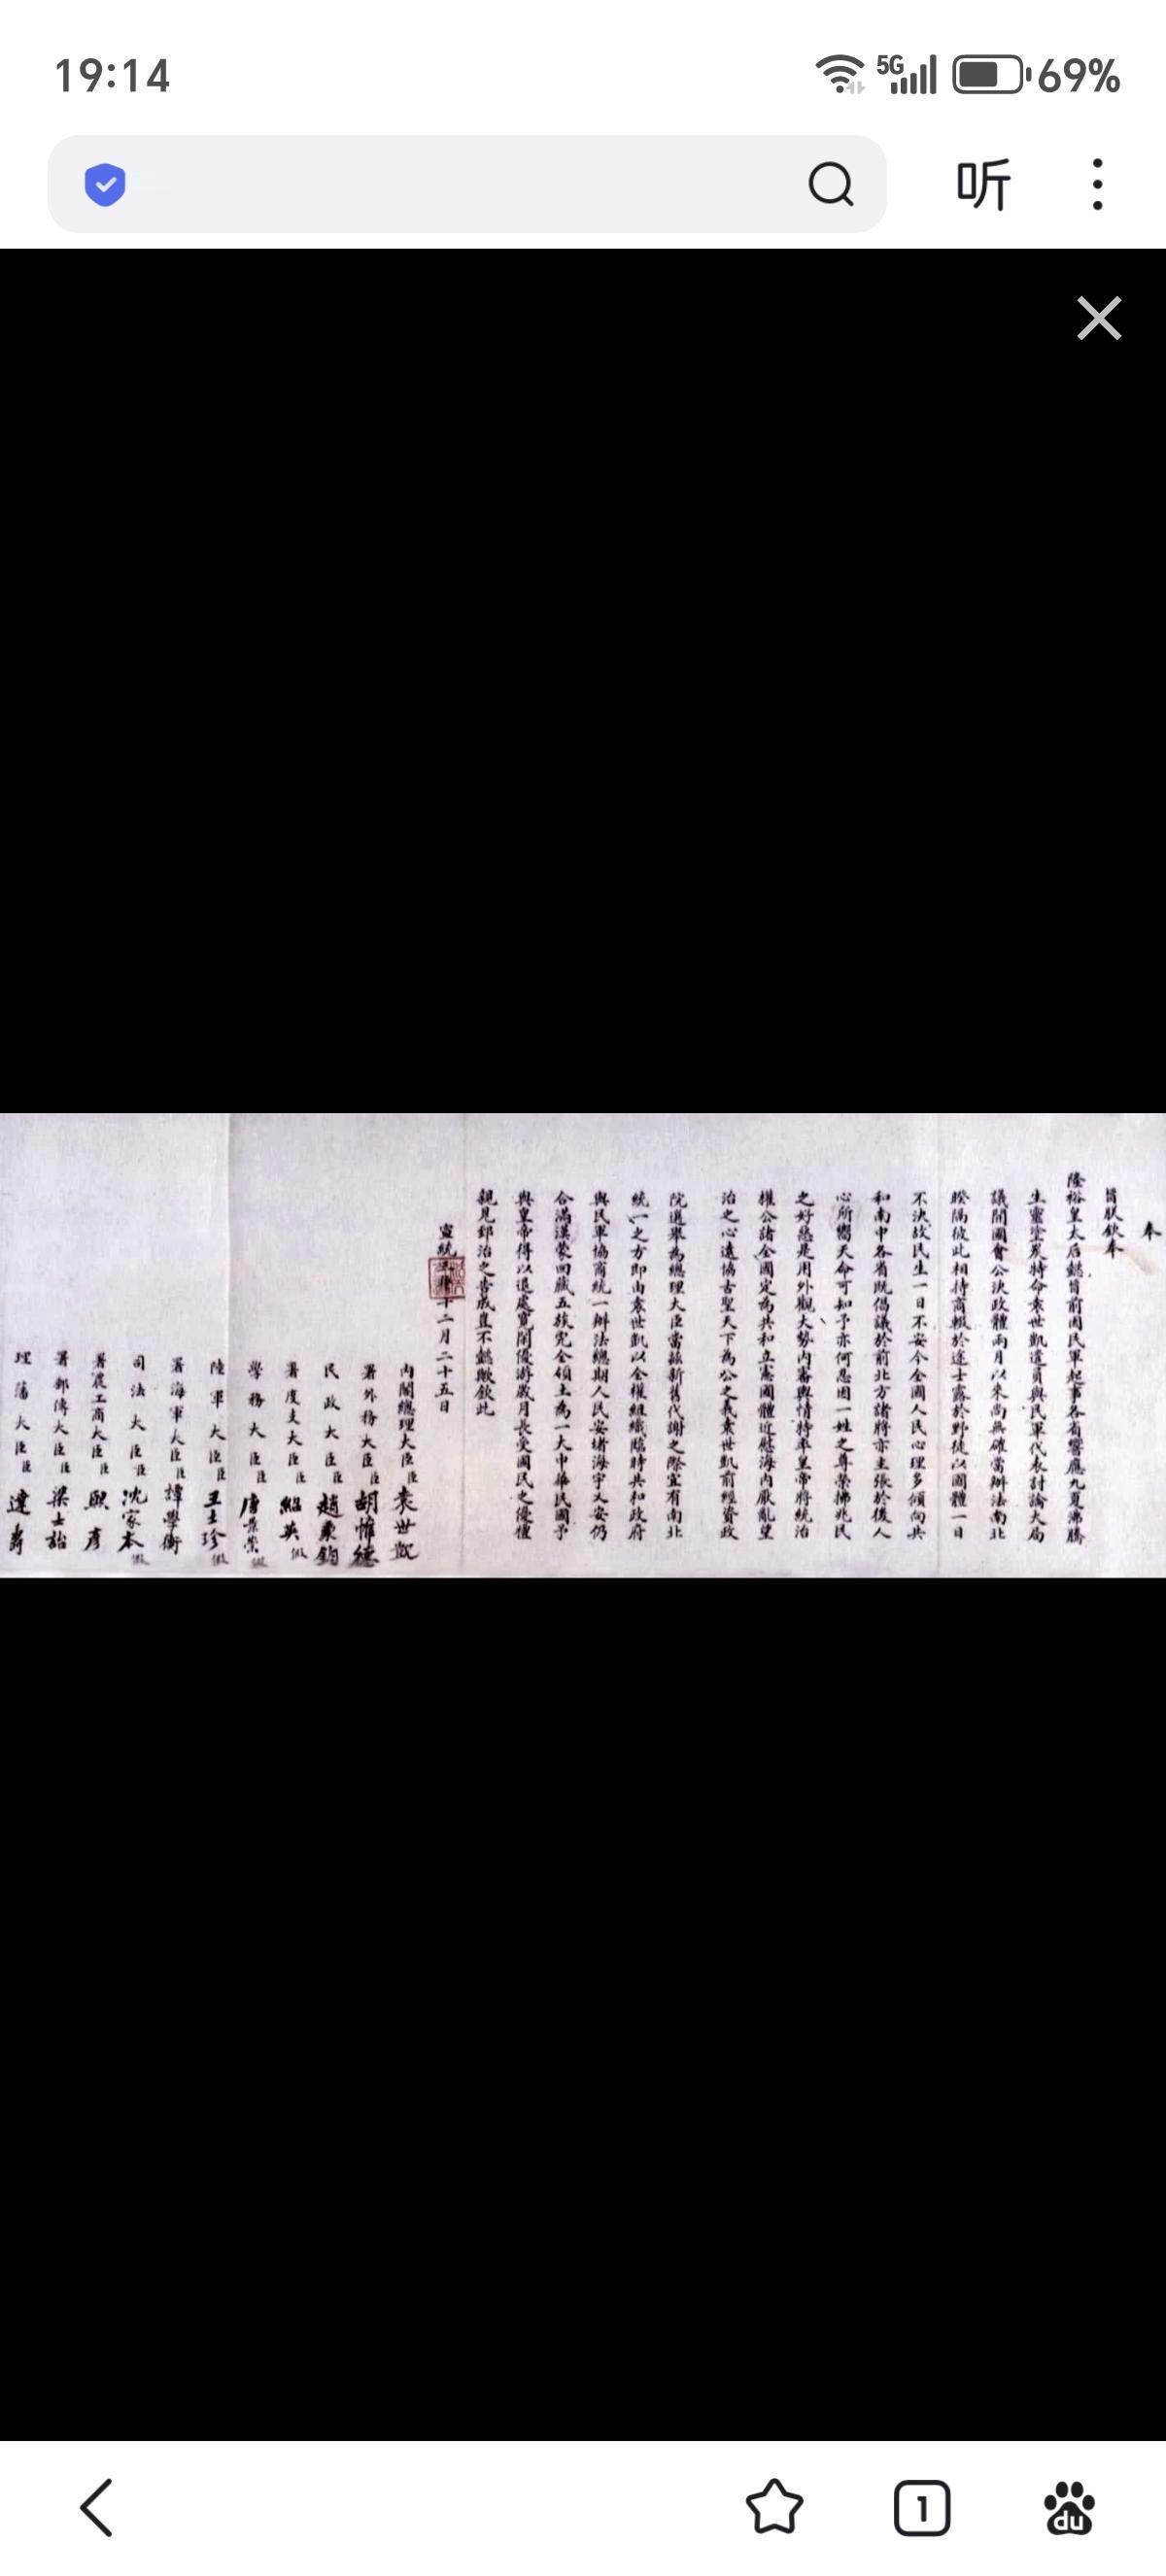 19:14
5G
69%
听
奉
旨朕欽奉
隆裕皇太后懿旨前因民軍起事各省響應九夏沸騰
生靈塗炭特命袁世凱遣員與民軍代表討論大局
議開國會公決政體兩月以來尚無確當辦法南北
暌隔彼此相持商輟於途士露於野徒以國體一日
不決故民生一日不安今全國人民心理多傾向共
和南中各省既倡議於前北方諸將亦主張於後人
心所嚮天命可知予亦何忍因一姓之尊榮拂兆民
之好惡是用外觀大勢內審輿情特率皇帝將統治
權公諸全國定為共和立憲國體近慰海內厭亂望
治之心遠協古聖天下為公之義袁世凱前經資政
院選舉為總理大臣當茲新舊代謝之際宜有南北
統一之方即由袁世凱以全權組織臨時共和政府
與民軍協商統一辦法總期人民安堵海宇乂安仍
合滿漢蒙回藏五族完全領土為一大中華民國予
與皇帝得以退處寬閒優游歲月長受國民之優禮
親見郅治之告成豈不懿歟欽此
宣統三年十二月二十五日
內閣總理大臣臣袁世凱
署外務大臣臣胡惟德
民政大臣臣趙秉鈞
署度支大臣臣紹英假
學務大臣臣唐景崇假
陸軍大臣臣王士珍假
署海軍大臣臣譚學衡
司法大臣臣沈家本假
署農工商大臣臣熙彥
署郵傳大臣臣梁士詒
理藩大臣臣達壽
1
du